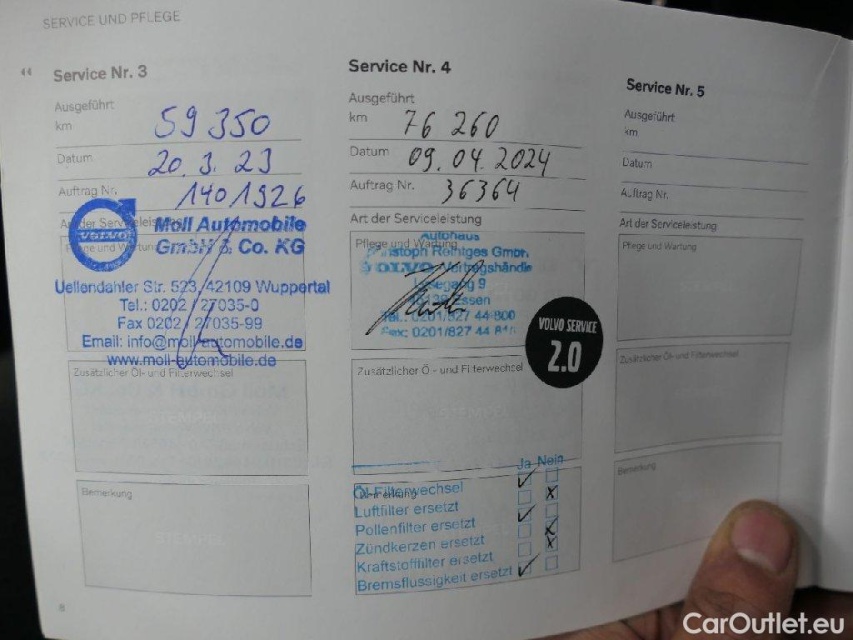 SERVICE UND PFLEGE
Service Nr. 3
Ausgeführt
km 59 350
Datum 20.3.23
Auftrag Nr. 1401926
Art der Serviceleistung
Pflege und Wartung
VOLVO
Moll Automobile
GmbH & Co. KG
Uellendahler Str. 523, 42109 Wuppertal
Tel.: 0202 / 27035-0
Fax 0202 / 27035-99
Email: info@moll-automobile.de
www.moll-automobile.de
Zusätzlicher Öl- und Filterwechsel
Bemerkung
8
Service Nr. 4
Ausgeführt
km 76 260
Datum 09.04.2024
Auftrag Nr. 36364
Art der Serviceleistung
Pflege und Wartung
Autohaus
GmbH
VOLVO
Essen
Tel.: 0201/827 44-800
Fax: 0201/827 44
VOLVO SERVICE
2.0
Zusätzlicher Öl- und Filterwechsel
Bemerkung
Ja Nein
Öl-Filterwechsel
Luftfilter ersetzt
Pollenfilter ersetzt
Zündkerzen ersetzt
Kraftstofffilter ersetzt
Bremsflüssigkeit ersetzt
Service Nr. 5
Ausgeführt
km
Datum
Auftrag Nr.
Art der Serviceleistung
Pflege und Wartung
Zusätzlicher Öl- und Filterwechsel
Bemerkung
CarOutlet.eu